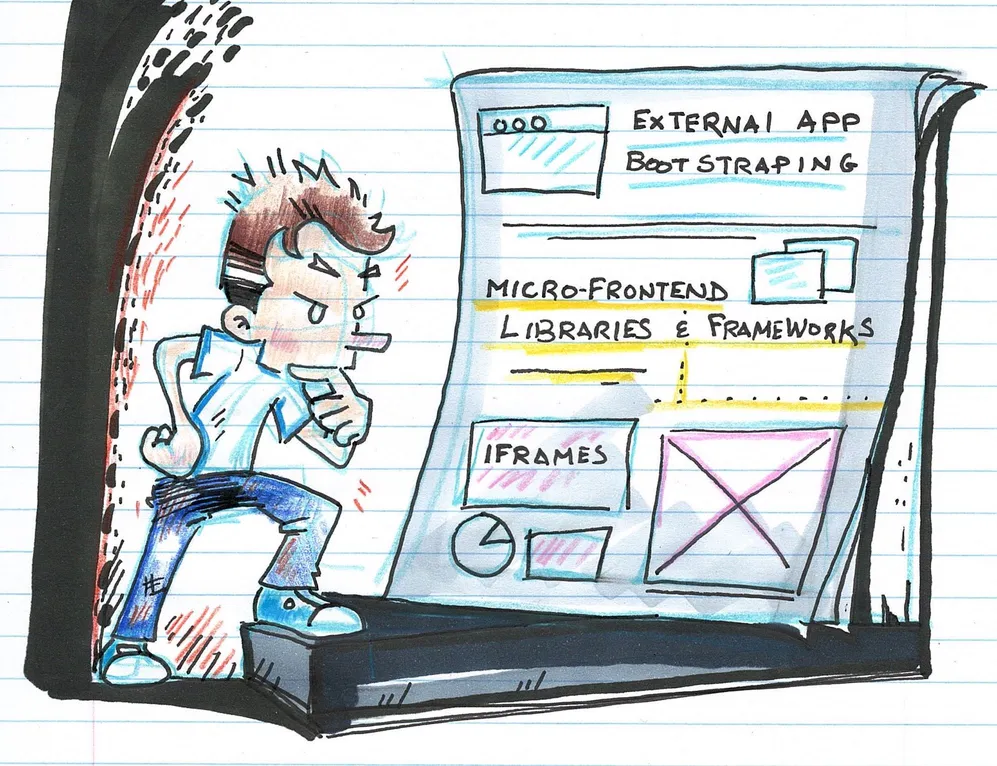 EXTERNAL APP
BOOTSTRAPING
MICRO-FRONTEND
LIBRARIES & FRAMEWORKS
IFRAMES